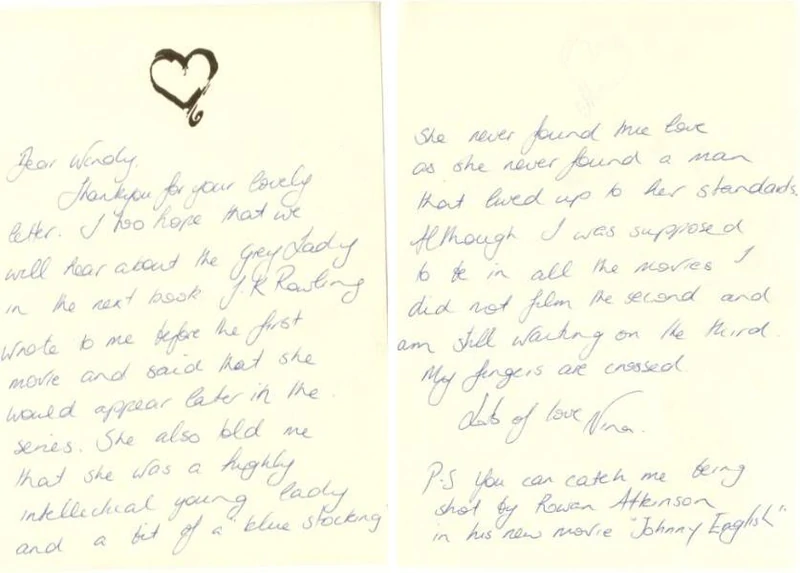 Dear Wendy,
Thankyou for your lovely
letter. I too hope that we
will hear about the Grey Lady
in the next book J.K Rowling
wrote to me before the first
movie and said that she
would appear later in the
series. She also told me
that she was a highly
intellectual young lady
and a bit of a "blue stocking"
She never found true love
as she never found a man
that lived up to her standards.
Although I was supposed
to be in all the movies I
did not film the second and
am still waiting on the third.
My fingers are crossed
Lots of love Nina.
P.S You can catch me being
shot by Rowan Atkinson
in his new movie "Johnny English"